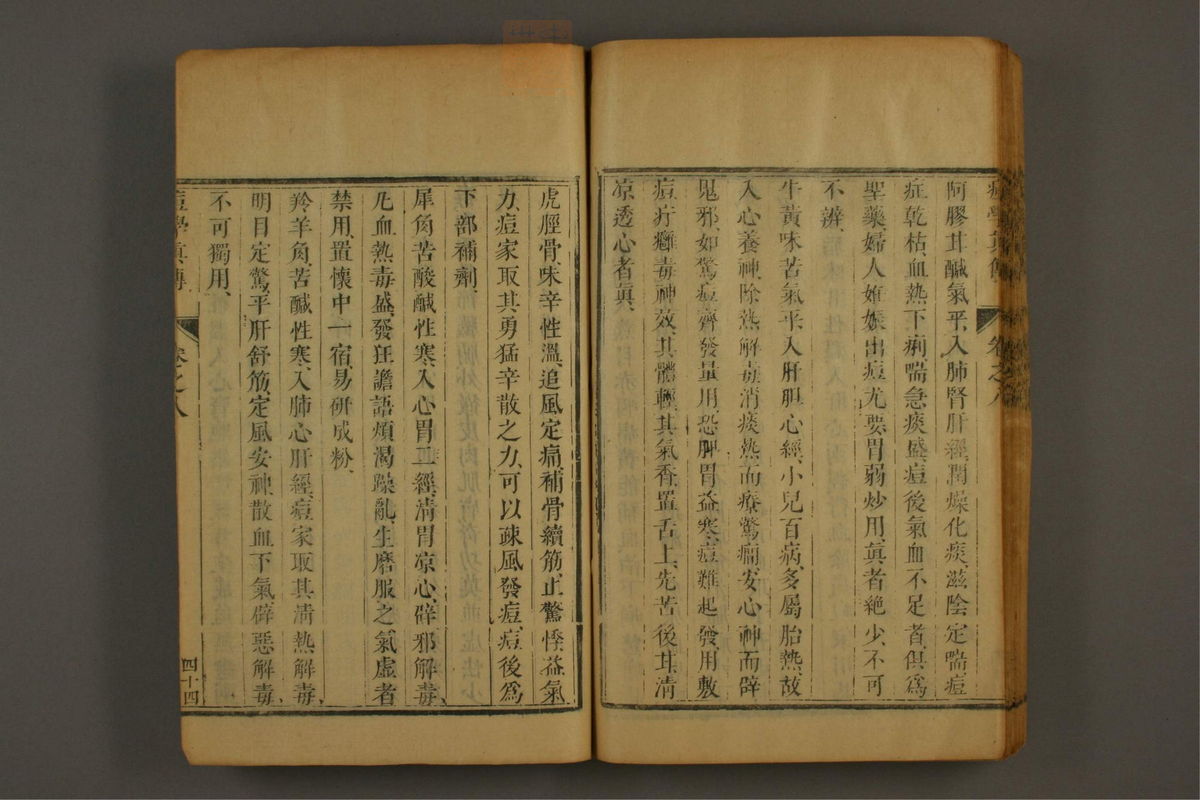 阿膠甘鹹氣平、入肺腎肝經、潤燥化痰、滋陰定喘、痘
症乾枯、血熱下痢、喘急痰盛、痘後氣血不足者、俱爲
聖藥、婦人姙娠出痘尤要、胃弱炒用、眞者絶少、不可
不辨、
牛黃味苦氣平、入肝胆心經、小兒百病、多屬胎熱、故
入心養神、除熱解毒、消痰熱而療驚癇、安心神而辟
鬼邪、如驚痘齊發、量用、恐脾胃益寒、痘難起發、用敷
痘疔癰毒神效、其體輕、其氣香、置舌上、先苦後甘、清
凉透心者眞、
虎脛骨、味辛性溫、追風定痛、補骨續筋、止驚悸、益氣
力、痘家取其勇猛辛散之力、可以疎風發痘、痘後爲
下部補劑、
犀角苦酸鹹性寒、入心胃二經、清胃凉心、辟邪解毒、
凡血熱毒盛、發狂譫語、煩渴躁亂、生磨服之、氣虛者
禁用、置懷中一宿、易研成粉、
羚羊角、苦鹹性寒、入肺心肝經、痘家取其清熱解毒、
明目定驚、平肝舒筋、定風安神、散血下氣、辟惡解毒
不可獨用、
痘學眞傳 卷之八 四十四